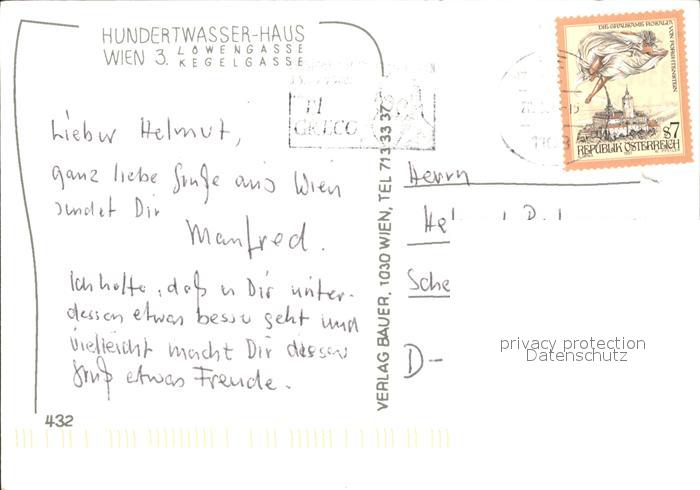 HUNDERTWASSER-HAUS
WIEN 3. LÖWENGASSE
KEGELGASSE
EL
GRECO
DIE GRAUSAME ROSALIA
VON FORCHTENSTEIN
S7
REPUBLIK ÖSTERREICH
Lieber Helmut,
ganz liebe Grüße aus Wien
sendet Dir
Manfred.
Ich hoffe, daß es Dir unter-
dessen etwas besser geht und
vielleicht macht Dir dieser
Gruß etwas Freude.
432
VERLAG BAUER, 1030 WIEN, TEL 713 33 37
Herrn
Sche
D-
privacy protection
Datenschutz